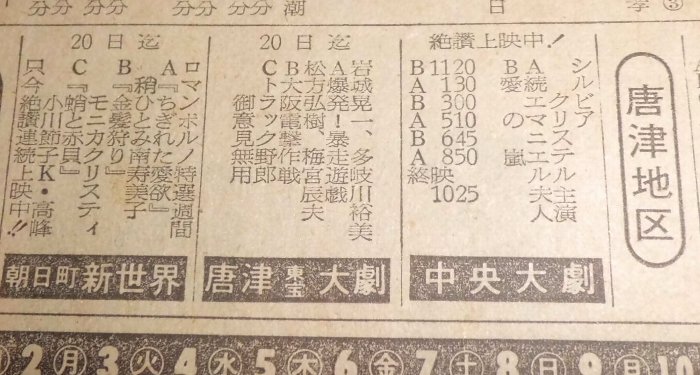 唐津地区
絶讃上映中!
シルビア
クリステル主演
A続エマニエル夫人
B愛の嵐
B 1120
A 130
B 300
A 510
B 645
A 850
終映 1025
中央大劇
20日迄
岩城晃一、多岐川裕美
A爆発!暴走遊戯
松方弘樹、梅宮辰夫
B大阪電撃作戦
Cトラック野郎
御意見無用
唐津東宝大劇
20日迄
ロマンポルノ特選週間
A『ちぎれた愛欲』
稍ひとみ南寿美子
B『金髪狩り』
モニカクリスティ
C『蛸と赤貝』
小川節子K・高峰
只今絶讃連続上映中!!
朝日町新世界
2月3火4水5木6金7土8日9月10